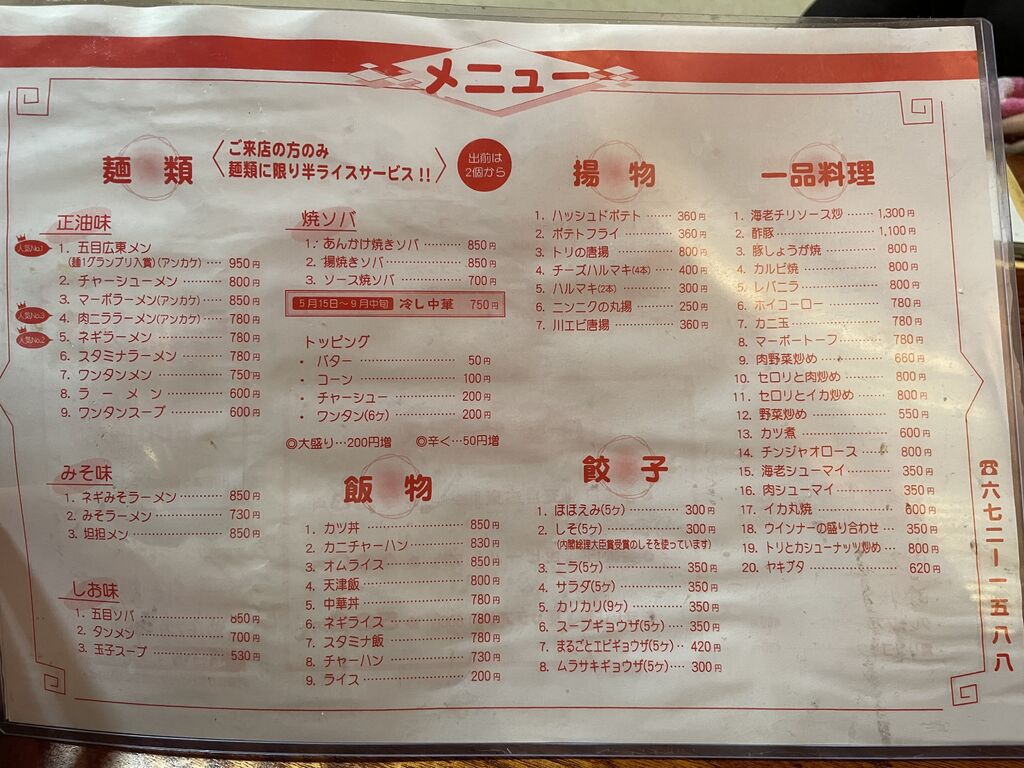 メニュー
麺類
ご来店の方のみ
麺類に限り半ライスサービス!!
出前は
2個から
正油味
人気No.1
1. 五目広東メン
(麺1グランプリ入賞)(アンカケ)…… 950円
2. チャーシューメン ………… 800円
3. マーボラーメン(アンカケ)… 850円
人気No.3
4. 肉ニララーメン(アンカケ)… 780円
人気No.2
5. ネギラーメン ………… 780円
6. スタミナラーメン ………… 780円
7. ワンタンメン ………… 750円
8. ラーメン ………… 600円
9. ワンタンスープ ………… 600円
みそ味
1. ネギみそラーメン ………… 850円
2. みそラーメン ………… 730円
3. 坦担メン ………… 850円
しお味
1. 五目ソバ ………… 850円
2. タンメン ………… 700円
3. 玉子スープ ………… 530円
焼ソバ
1. あんかけ焼きソバ ………… 850円
2. 揚焼きソバ ………… 850円
3. ソース焼ソバ ………… 700円
5月15日〜9月中旬 冷し中華 750円
トッピング
・ バター ………… 50円
・ コーン ………… 100円
・ チャーシュー ………… 200円
・ ワンタン(6ヶ) ………… 200円
◎大盛り…200円増 ◎辛く…50円増
飯物
1. カツ丼 ………… 850円
2. カニチャーハン ………… 830円
3. オムライス ………… 850円
4. 天津飯 ………… 800円
5. 中華丼 ………… 780円
6. ネギライス ………… 780円
7. スタミナ飯 ………… 780円
8. チャーハン ………… 730円
9. ライス ………… 200円
揚物
1. ハッシュドポテト …… 360円
2. ポテトフライ ………… 360円
3. トリの唐揚 ………… 800円
4. チーズハルマキ(4本)… 400円
5. ハルマキ(2本) ………… 300円
6. ニンニクの丸揚 ……… 250円
7. 川エビ唐揚 ………… 360円
餃子
1. ほほえみ(5ヶ) ………… 300円
2. しそ(5ヶ) ………… 300円
(内閣総理大臣賞受賞のしそを使っています)
3. ニラ(5ヶ) ………… 350円
4. サラダ(5ヶ) ………… 350円
5. カリカリ(9ヶ) ………… 350円
6. スープギョウザ(5ヶ)…… 350円
7. まるごとエビギョウザ(5ヶ)‥ 420円
8. ムラサキギョウザ(5ヶ)…… 300円
一品料理
1. 海老チリソース炒 ……… 1,300円
2. 酢豚 ………… 1,100円
3. 豚しょうが焼 ………… 800円
4. カルビ焼 ………… 800円
5. レバニラ ………… 800円
6. ホイコーロー ………… 780円
7. カニ玉 ………… 780円
8. マーボートーフ ………… 780円
9. 肉野菜炒め ………… 660円
10. セロリと肉炒め ……… 800円
11. セロリとイカ炒め ……… 800円
12. 野菜炒め ………… 550円
13. カツ煮 ………… 600円
14. チンジャオロース ……… 800円
15. 海老シューマイ ……… 350円
16. 肉シューマイ ………… 350円
17. イカ丸焼 ………… 600円
18. ウインナーの盛り合わせ … 350円
19. トリとカシューナッツ炒め… 800円
20. ヤキブタ ………… 620円
☎六七二ー一五八八